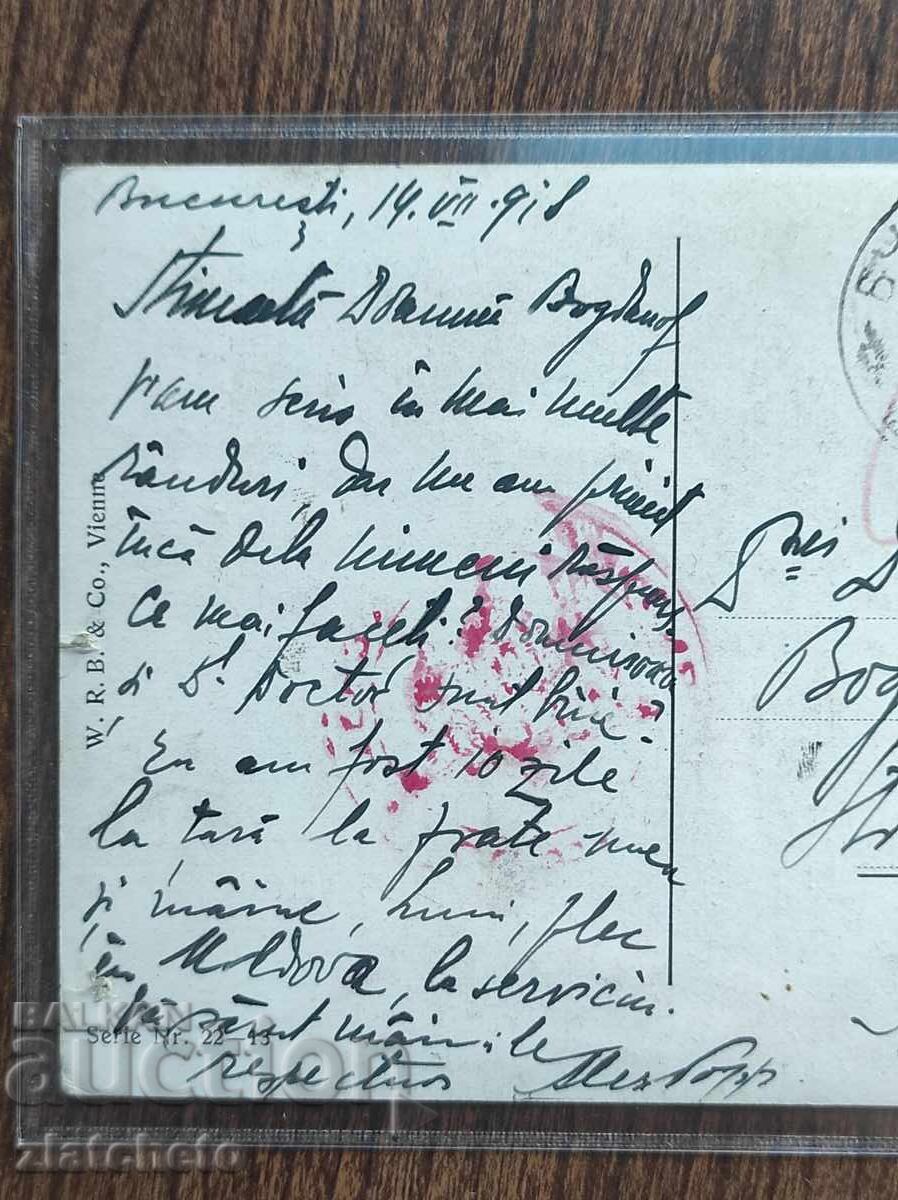 București, 14. VII. 918
Stimată Doamnă Bogdanof
V'am scris în mai multe
rânduri, dar nu am primit
încă dela nimeni răspuns.
Ce mai faceți? Domnișoara
și Dl Doctor sunt bine?
Eu am fost 10 zile
la țară la frate-meu
și mâine, luni, plec
în Moldova, la serviciu.
Vă sărut mâinile
respectuos Alex Popp
W. R. B. & Co., Vienne
Serie Nr. 22-13
Bog
BALKAN
auction
zlatcheto